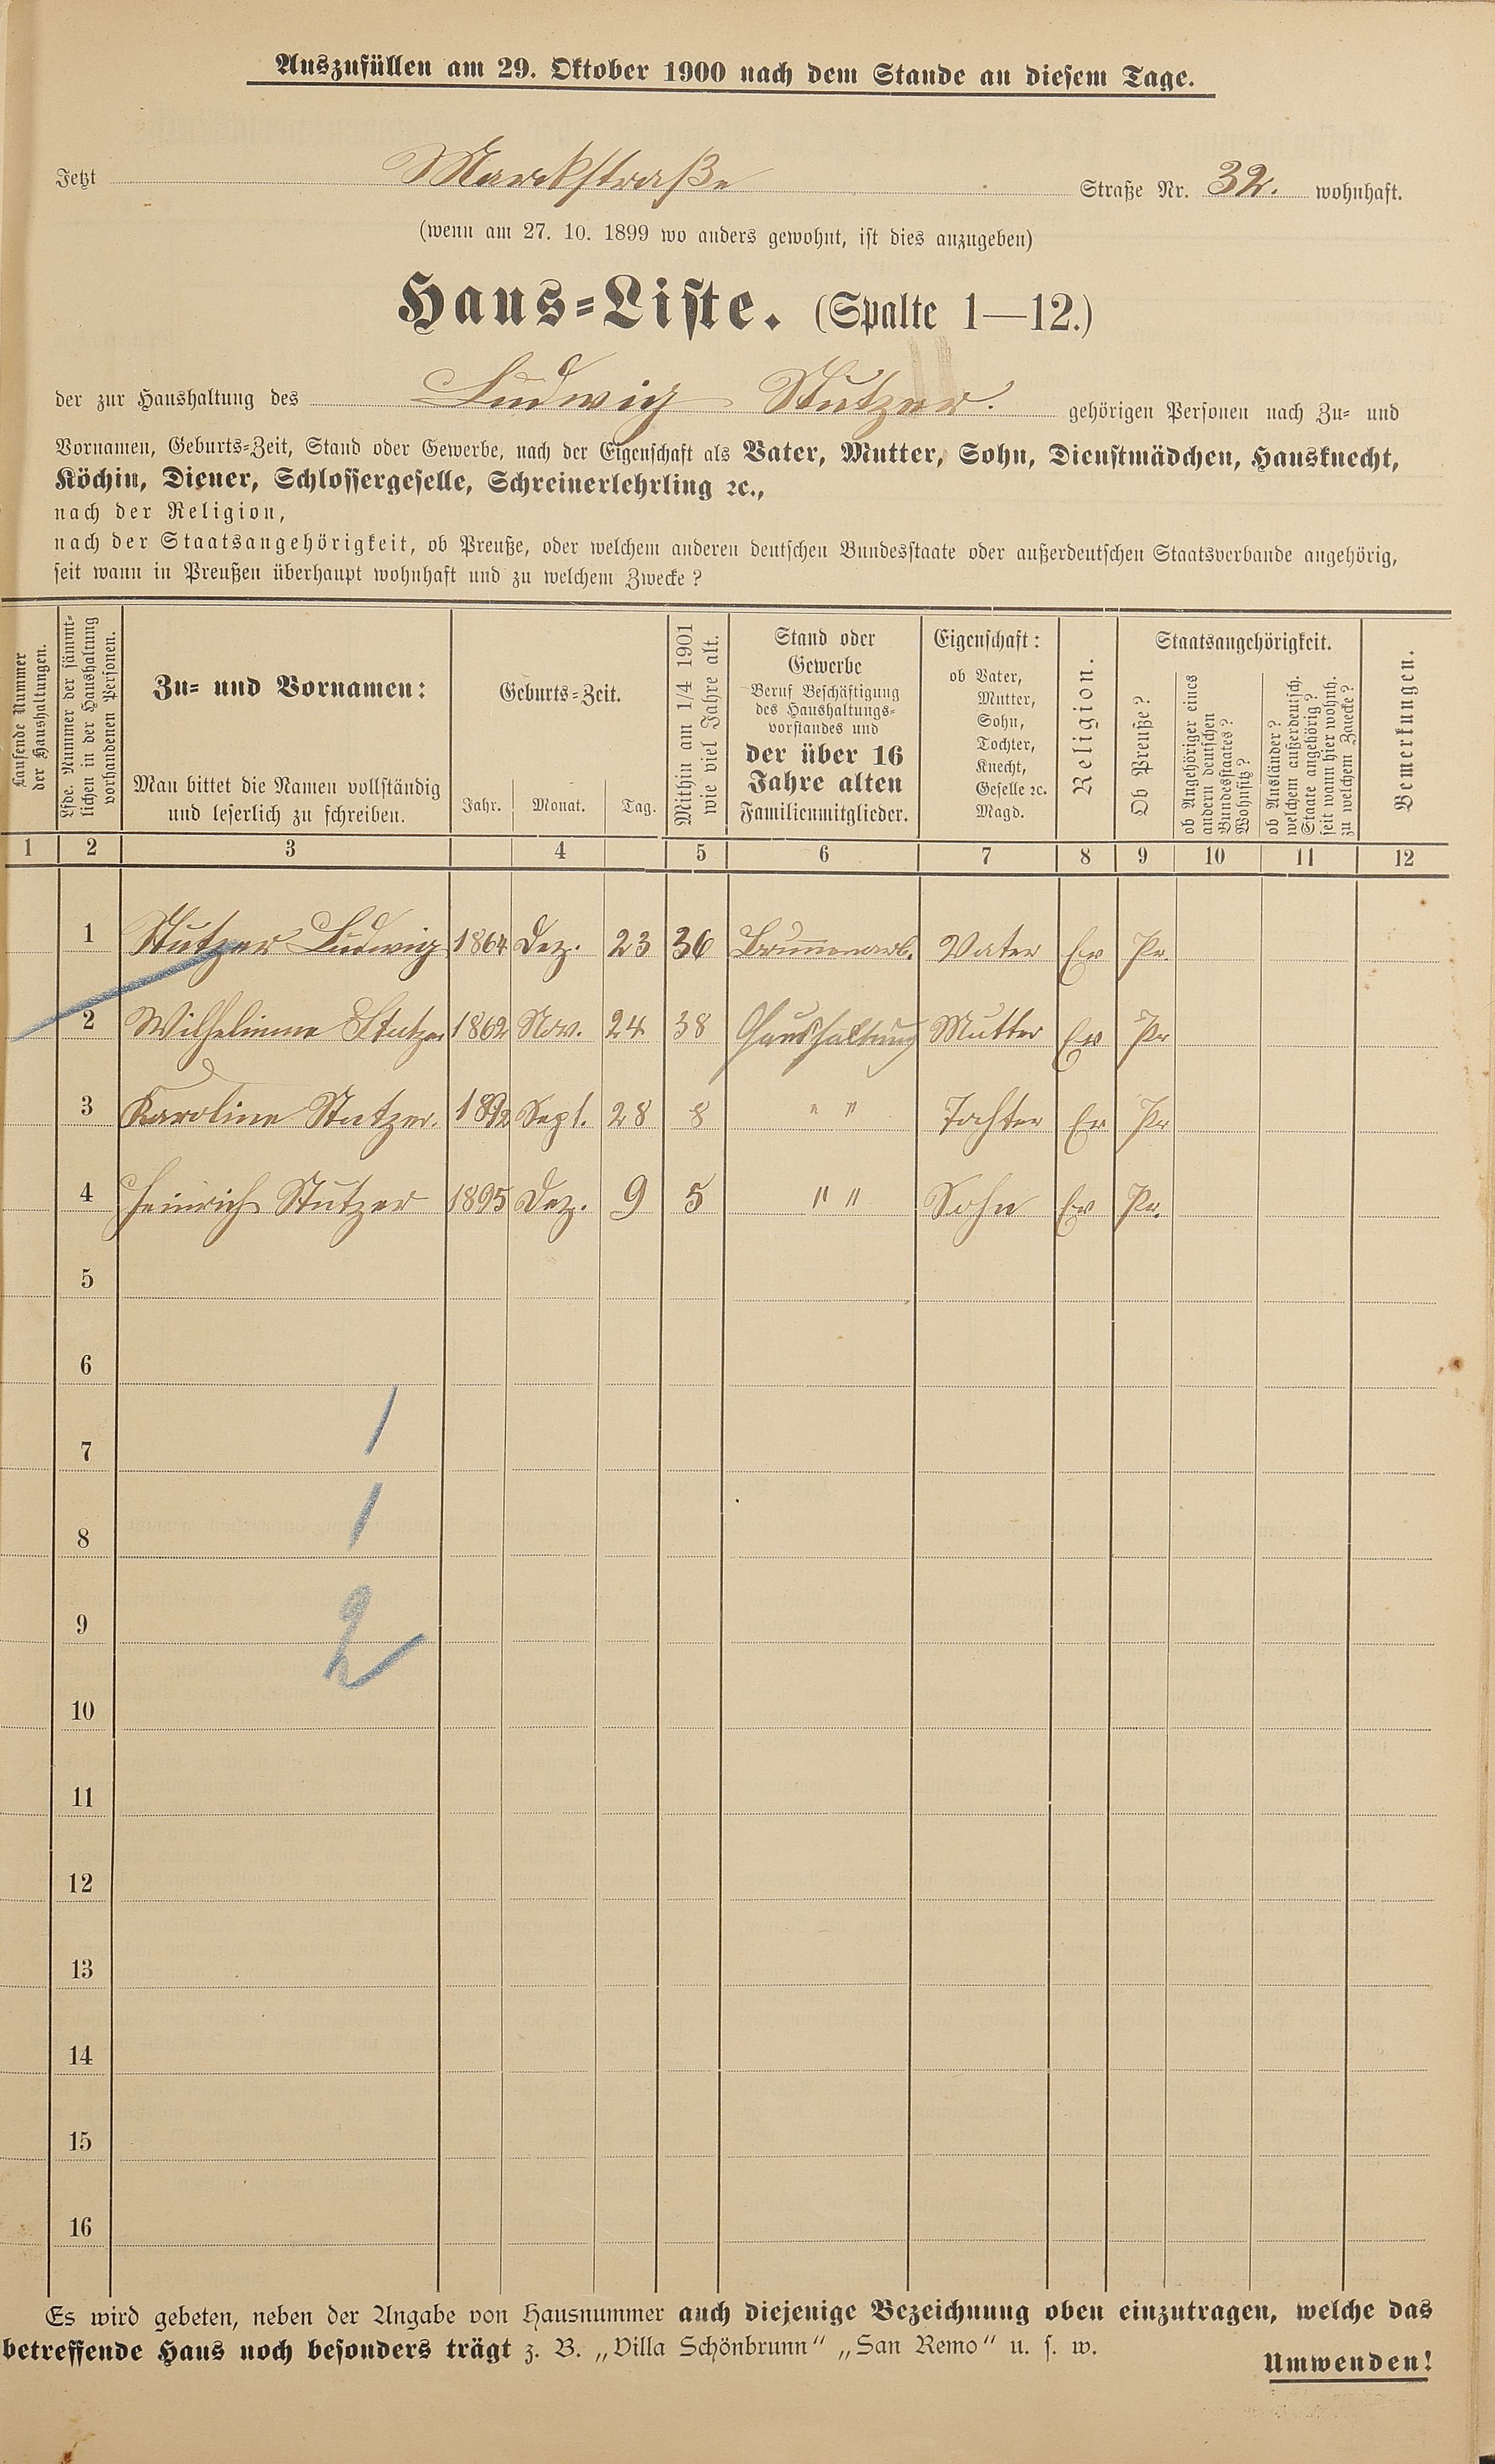 Auszufüllen am 29. Oktober 1900 nach dem Stande an diesem Tage.
Jetzt Marktstraße Straße Nr. 32. wohnhaft.
(wenn am 27. 10. 1899 wo anders gewohnt, ist dies anzugeben)
Haus=Liste. (Spalte 1—12.)
der zur Haushaltung des Ludwig Stutzer. gehörigen Personen nach Zu= und
Vornamen, Geburts=Zeit, Stand oder Gewerbe, nach der Eigenschaft als Vater, Mutter, Sohn, Dienstmädchen, Hausknecht,
Köchin, Diener, Schlossergeselle, Schreinerlehrling ꝛc.,
nach der Religion,
nach der Staatsangehörigkeit, ob Preuße, oder welchem anderen deutschen Bundesstaate oder außerdeutschen Staatsverbande angehörig,
seit wann in Preußen überhaupt wohnhaft und zu welchem Zwecke?
Laufende Nummer
der Haushaltungen.
Lfde. Nummer der sämmt=
lichen in der Haushaltung
vorhandenen Personen.
Zu= und Vornamen:
Man bittet die Namen vollständig
und leserlich zu schreiben.
Geburts=Zeit.
Jahr. Monat. Tag.
Mithin am 1/4 1901
wie viel Jahre alt.
Stand oder
Gewerbe
Beruf Beschäftigung
des Haushaltungs=
vorstandes und
der über 16
Jahre alten
Familienmitglieder.
Eigenschaft:
ob Vater,
Mutter,
Sohn,
Tochter,
Knecht,
Geselle ꝛc.
Magd.
Religion.
Staatsangehörigkeit.
Ob Preuße?
ob Angehöriger eines
andern deutschen
Bundesstaates?
Wohnsitz?
ob Ausländer?
welchem außerdeutsch.
Staate angehörig?
seit wann hier wohnh.
zu welchem Zwecke?
Bemerkungen.
1 2 3 4 5 6 7 8 9 10 11 12
1 Stutzer Ludwig 1864 Dez. 23 36 Brunnenarb. Vater Ev Pr.
2 Wilhelmine Stutzer 1862 Nov. 24 38 Haushaltung Mutter Ev Pr
3 Karoline Stutzer. 1892 Sept. 28 8 " " Tochter Ev Pr
4 Heinrich Stutzer 1895 Dez. 9 5 " " Sohn Ev Pr.
5
6
7 1
8 1
9 2
10
11
12
13
14
15
16
Es wird gebeten, neben der Angabe von Hausnummer auch diejenige Bezeichnung oben einzutragen, welche das
betreffende Haus noch besonders trägt z. B. „Villa Schönbrunn“ „San Remo“ u. s. w.
Umwenden!